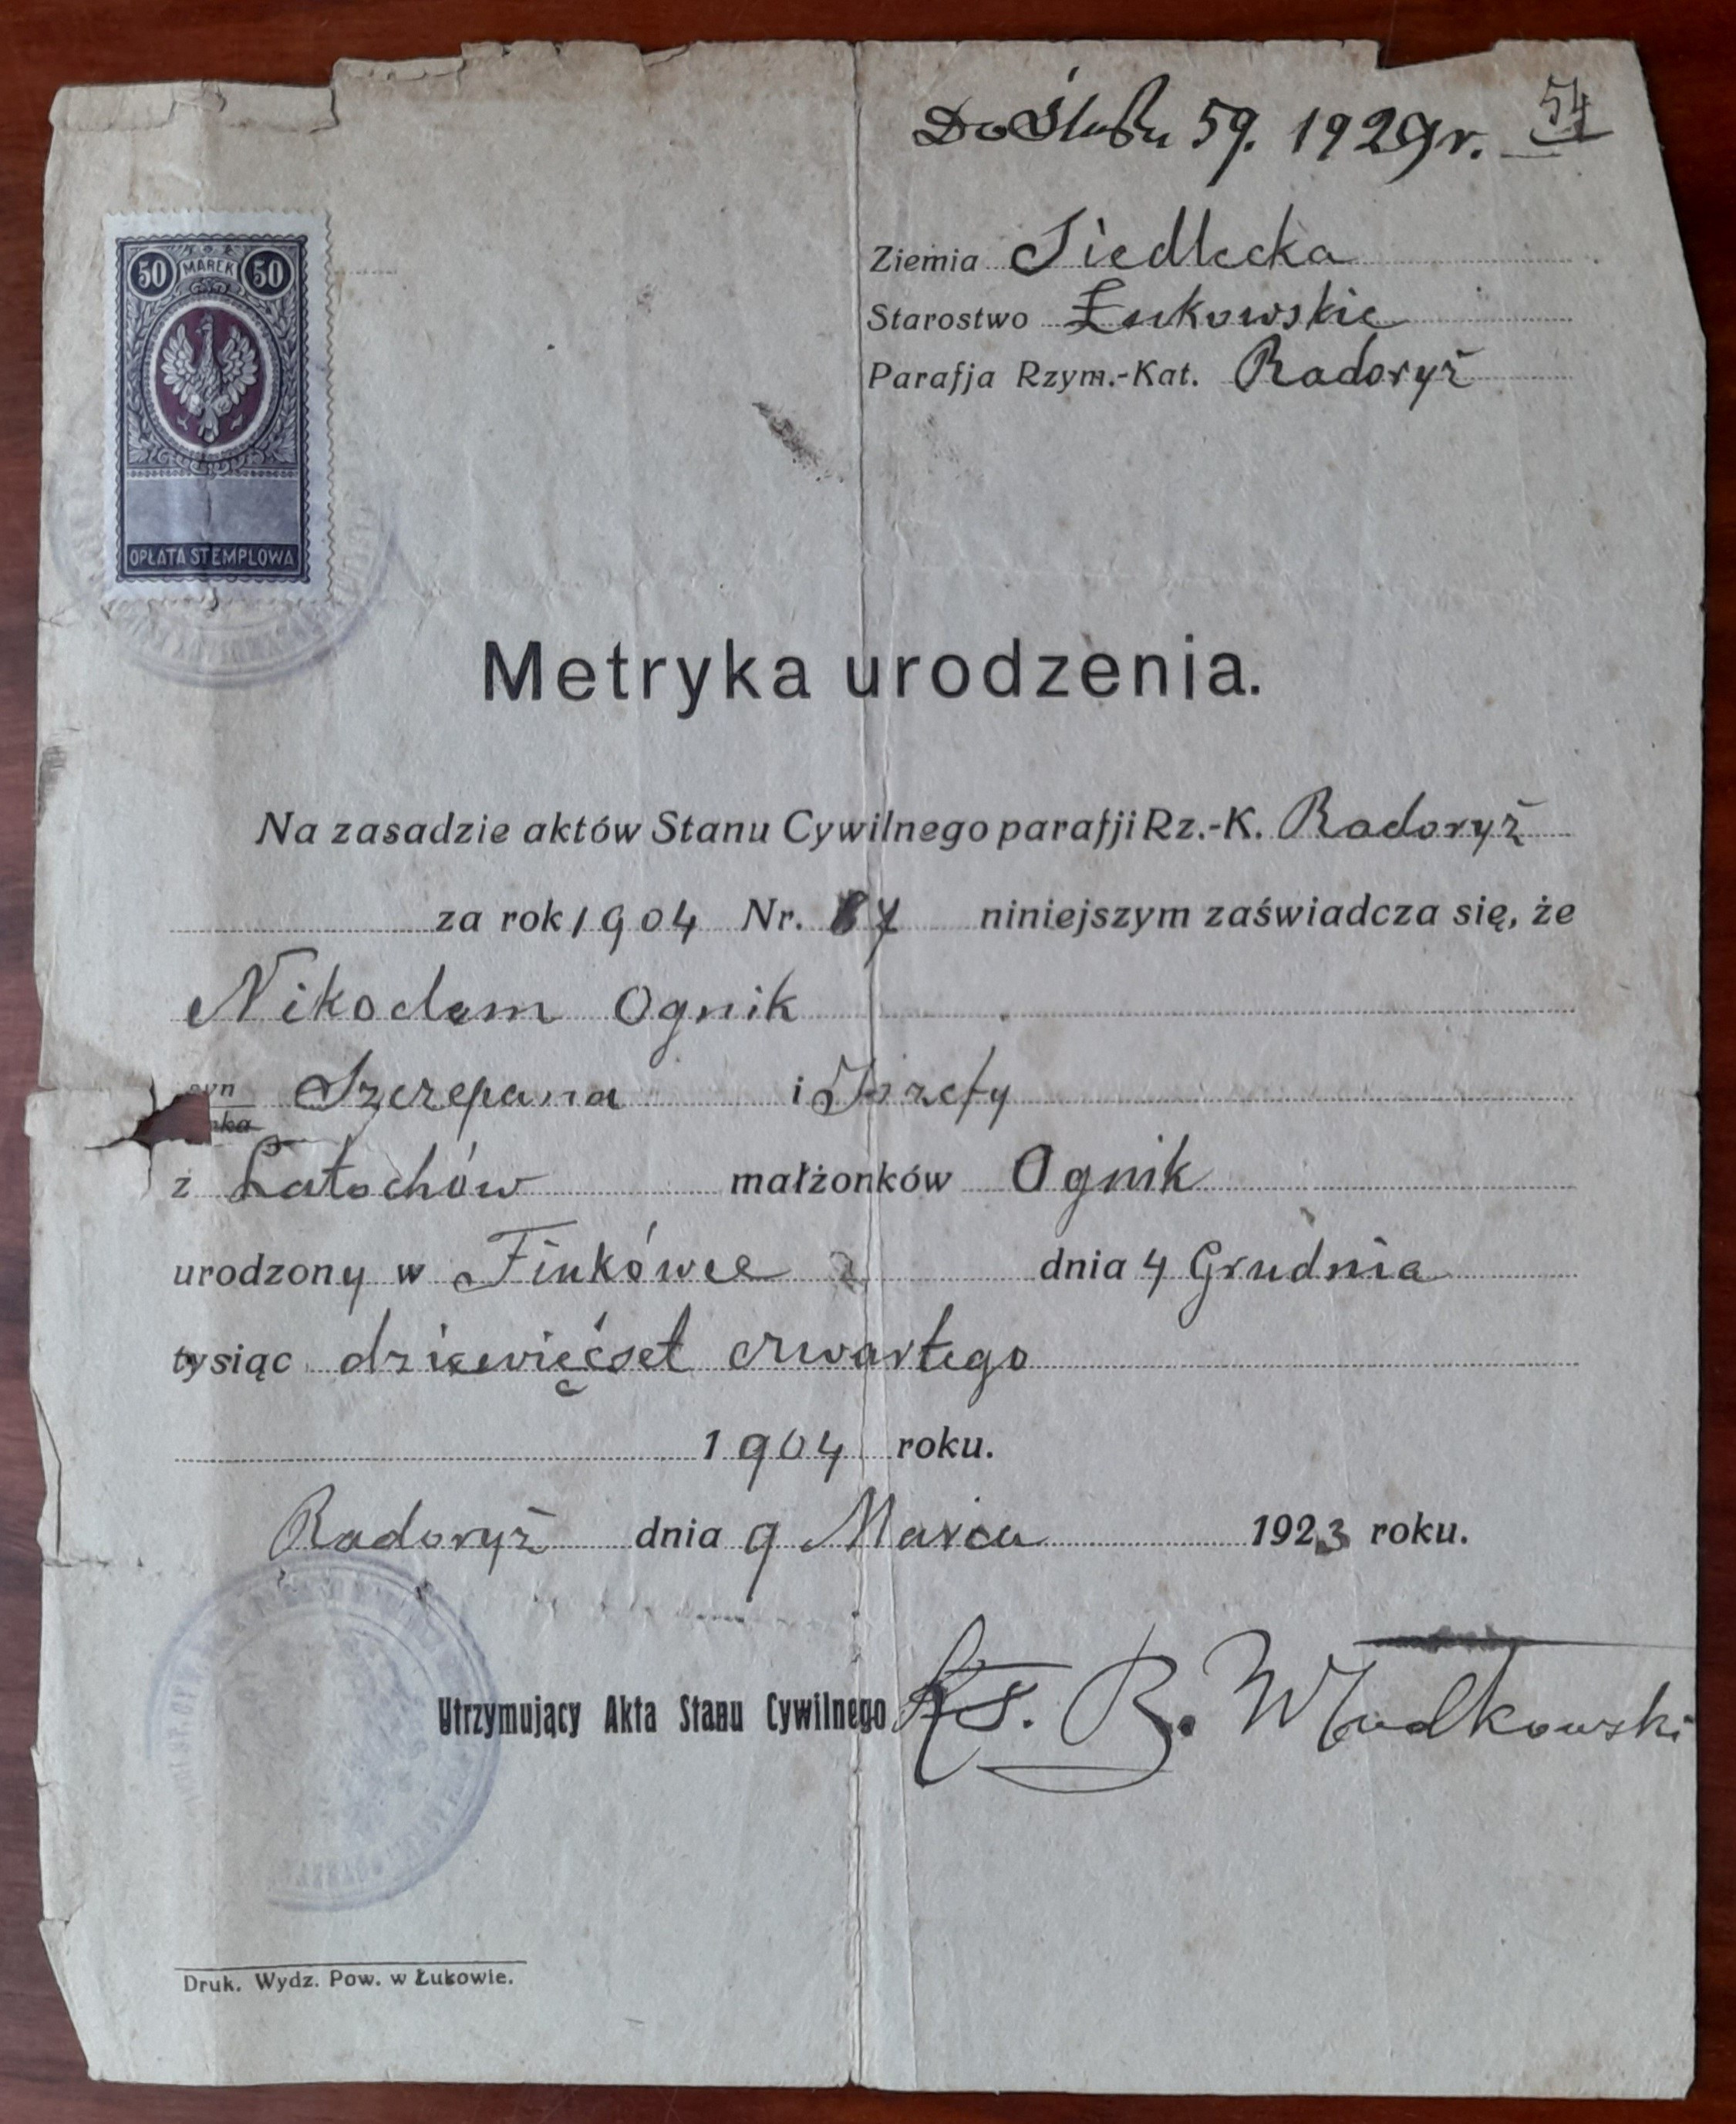 Do Ślubu 59. 1929 r. 54
50 MAREK 50
OPŁATA STEMPLOWA
Ziemia Siedlecka
Starostwo Łukowskie
Parafja Rzym.-Kat. Radoryż
Metryka urodzenia.
Na zasadzie aktów Stanu Cywilnego parafji Rz.-K. Radoryż
za rok 1904 Nr. 87 niniejszym zaświadcza się, że
Nikodem Ognik
syn Szczepana i Józefy
z Latochów małżonków Ognik
urodzony w Finkówce dnia 4 Grudnia
tysiąc dziewięćset czwartego
1904 roku.
Radoryż dnia 9 Marca 1923 roku.
Utrzymujący Akta Stanu Cywilnego Ks. B. Wludkowski
Druk. Wydz. Pow. w Łukowie.